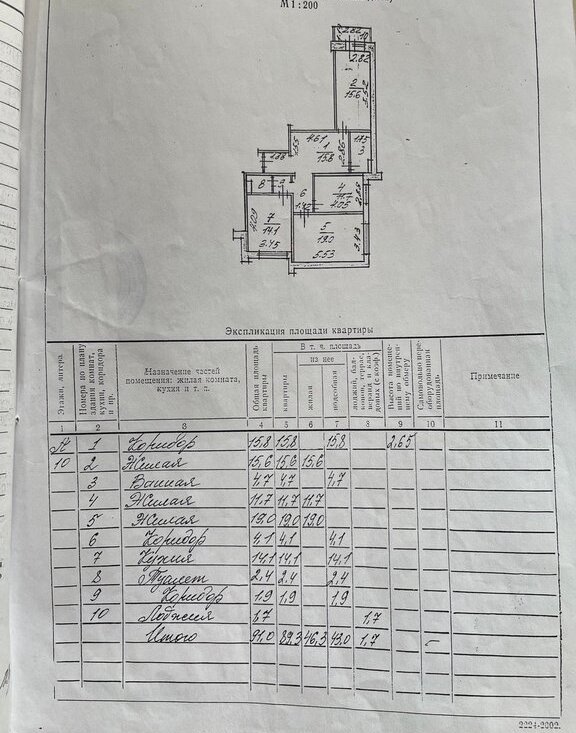 М 1:200
2.82
10
2.82
2
15.6
5.52
4.61
1
15.8
2.86
1.75
3
1.98
8
9
6
1.42
4
11.7
4.05
7
14.1
4.09
3.45
5
19.0
5.53
3.43
Экспликация площади квартиры
Этажи, литера
Номера по плану здания комнат, кухни, коридора и пр.
Назначение частей помещения: жилая комната, кухня и т. п.
Общая площадь квартиры
В т. ч. площадь
квартиры
из нее
жилая
подсобная
лоджий, балконов, террас, веранд и кладовых (с коэф.)
Высота помещений по внутреннему обмеру
Самовольно переоборудованная площадь
Примечание
1 2 3 4 5 6 7 8 9 10 11
А 1 Коридор 15,8 15,8 15,8 2,65
10 2 Жилая 15,6 15,6 15,6
3 Ванная 4,7 4,7 4,7
4 Жилая 11,7 11,7 11,7
5 Жилая 19,0 19,0 19,0
6 Коридор 4,1 4,1 4,1
7 Кухня 14,1 14,1 14,1
8 Туалет 2,4 2,4 2,4
9 Коридор 1,9 1,9 1,9
10 Лоджия 1,7 1,7
Итого 91,0 89,3 46,3 43,0 1,7 –
2224-2002.